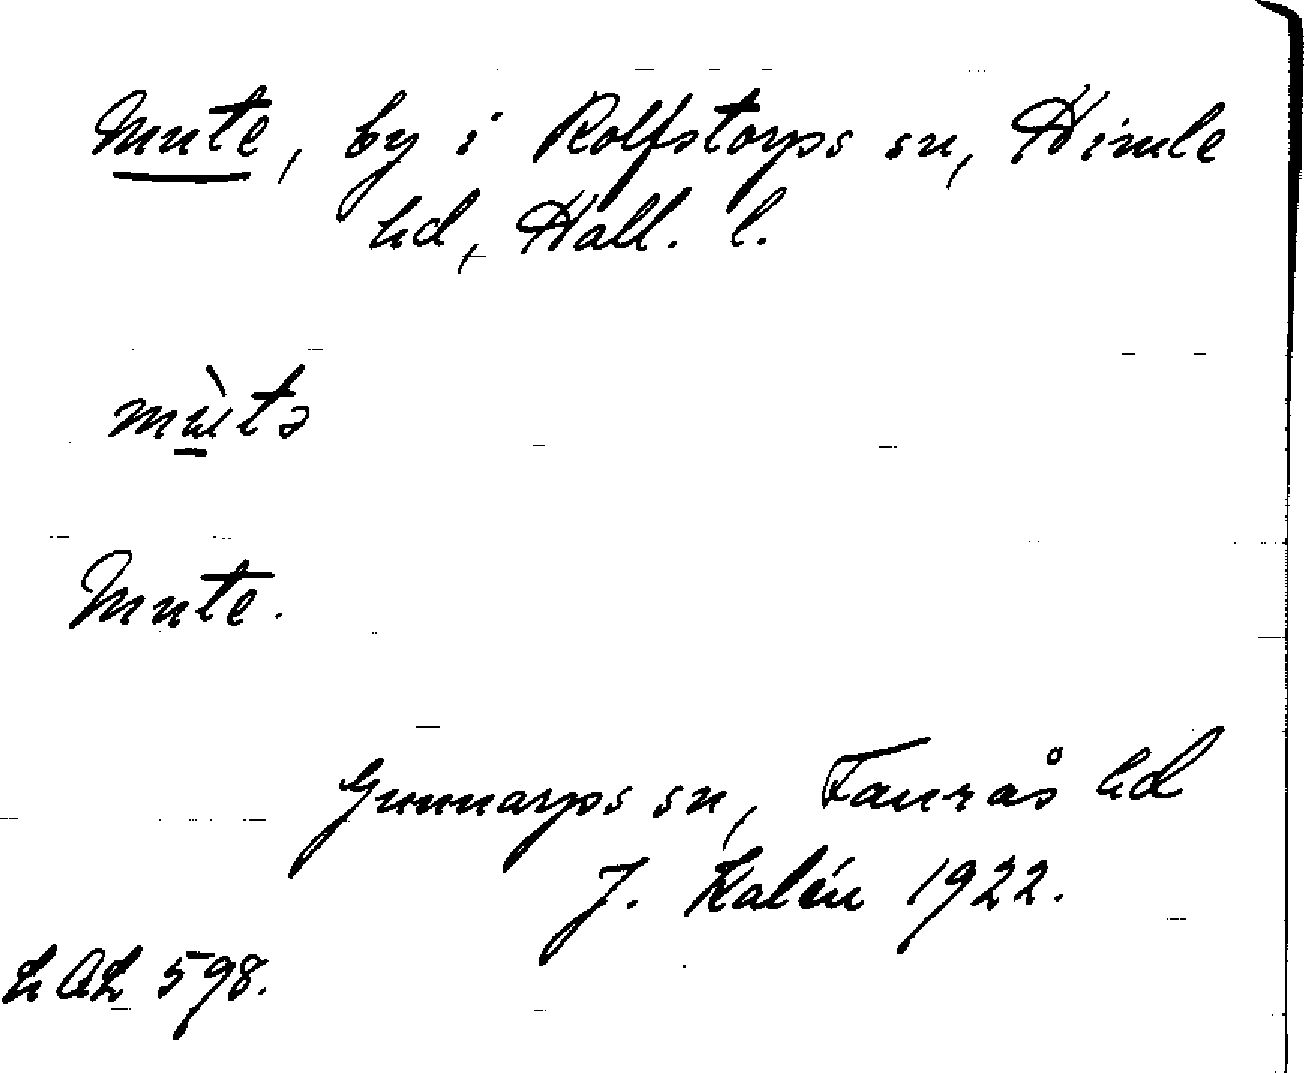 Mute, by i Rolfstorps sn, Himle
hd, Hall. l.
mùtə
Mute.
Gunnarps sn, Faurås hd
J. Kalén 1922.
LAL 598.